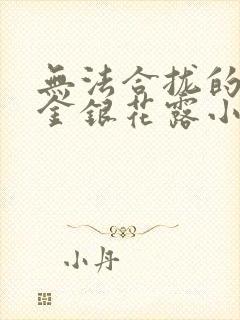 無法合拢的
金銀花露小
小丹